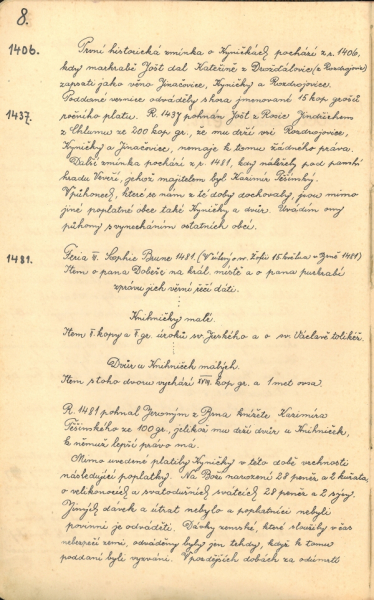 8.
1406. První historická zmínka o Kyničkách pochází z r. 1406,
kdy markrabě Jošt dal Kateřině z Drahotuš (z Rozdrojovic)
zapsati jako věno Jinačovice, Kyničky a Rozdrojovice.
Poddané vesnice odváděly shora jmenované 15 kop grošů
ročního platu. R. 1437 pohnán Jošt z Rosic Jindřichem
1437. z Chlumu ze 200 kop gr., že mu drží vsi Rozdrojovice,
Kyničky a Jinačovice, nemaje k tomu žádného práva.
Další zmínka pochází z r. 1481, kdy náležely pod panství
hradu Veveří, jehož majitelem byl Kazimír Těšínský.
V půhonech, které se nám z té doby dochovaly, jsou mimo
jiné poplatné obce také Kyničky a dvůr. Uvádím ony
půhony s vynecháním ostatních obcí.
1481. Feria IV. Sophie Brune 1481. (V úterý o sv. Žofii 15. května v Brně 1481)
Item o pana Dobeše na král. místě a o pana purkrabí
zprávu jich věrní řečí dáti.
Knihničky malé.
Item V. kopy a V gr. úroků sv. Jerského a o sv. Václavě tolikéž.
Dvůr u Knihniček malých.
Item z toho dvoru vychází XVII. kop. gr. a 1 met ovsa.
R. 1481 pohnal Jeroným z Brna knížete Kazimíra
Těšínského ze 100 gr., jelikož mu drží dvůr u Knihniček,
k němuž lepší právo má.
Mimo uvedené platily Kyničky v této době vrchnosti
následující poplatky. Na Boží narození 28 peněz a 2 kuřata,
o velikonocích a svatodušních svátcích 28 peněz a 2 sýry.
Jiných dávek a útrat nebylo a poplatníci nebyli
povinni je odváděti. Dávky zemské, které sloužily v čas
nebezpečí zemi, odváděny byly jen tehdy, když k tomu
poddaní byli vyzváni. V pozdějších dobách za odúmrtě